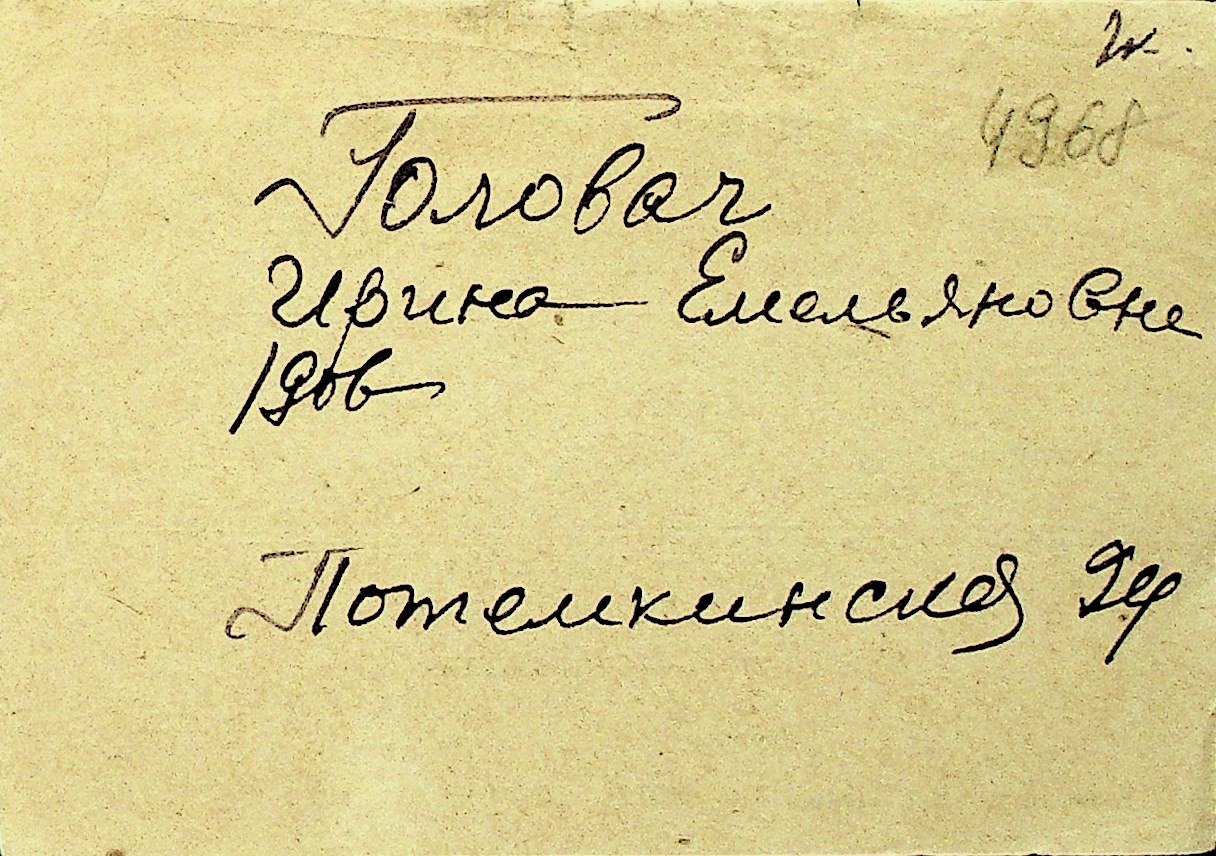 4968
Головач
Ирина Емельяновне
Потемкинская